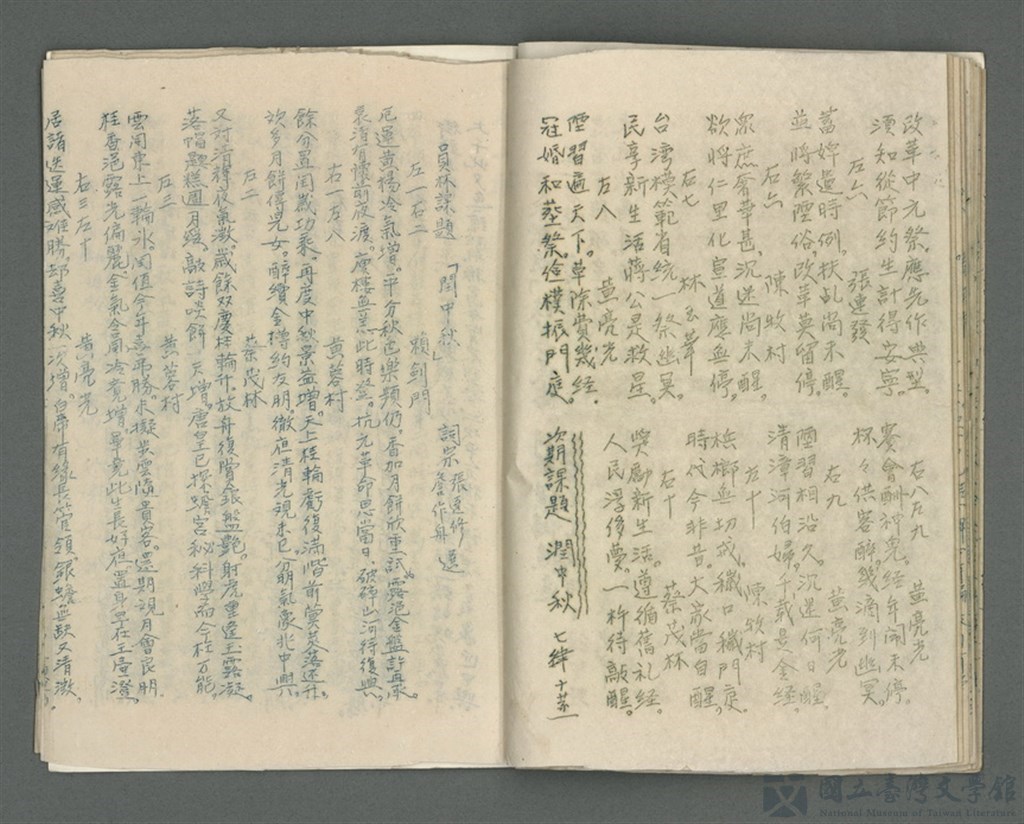 改革中元祭。應先作典型。
須知從節約。生計得安寧。
左六 張建發
舊婢過時例。扶乩尚未醒。
並將繁陋俗。改革莫留停。
右六 陳牧村
眾庶奢華甚。沉迷尚未醒。
欲將仁里化。宣道應無停。
右七 林玉華
台灣模範省。統一祭幽冥。
民享新生活。蔣公是救星。
左八 黃亮光
陋習遍天下。革除費幾經。
冠婚和葬祭。儉樸振門庭。
右八左九 黃亮光
賽會酬神鬼。經年鬧未停。
杯々供客醉。幾滴到幽冥。
右九 黃亮光
陋習相沿久。沉迷何日醒。
清漳河伯婦。千載是金經。
左十 陳牧村
檳榔無切戒。穢口穢門庭。
時代今非昔。大家當自醒。
右十 蔡茂林
獎勵新生活。遵循舊禮經。
人民浮後夢。一杵待敲醒。
次期課題 潤中秋 七律十蒸
員林課題「閏中秋」 詞宗 張達修 詹作舟 選
左一右二 賴劍門
厄運黃楊冷氣增。平分秋色樂頻仍。香加月餅欣重試。露浥金盤許再承。
袁渚有懷前夜渡。庾樓無恙此時登。抗元革命思當日。破碎山河待復興。
右一左八 黃蓉村
餘分置閏歲功乘。再度中秋景益增。天上桂輪虧復滿。階前蓂莢落還升。
欣多月餅傳兒女。醉續金樽約友朋。徹夜清光視未已。
左二 蔡茂林
又对清樽夜氣澂。歲餘双慶桂輪升。放舟復賞銀盤艷。射虎重逢玉露凝。
落帽題糕圓月強。敲詩啖餅一天增。唐皇已探蟾宮秘。科學而今在万能。
左三 黃蓉村
雲開東上一輪氷。閏值今年喜不勝。未擬步雲隨貴客。還期視月會良朋。
桂香浥露光偏麗。金氣含周冷竟增。畢竟此生長好夜。置身宇在玉壺澄。
右三左十 黃亮光
居諸迭運感難勝。却喜中秋一次增。白帝有緣長管領。銀蟾無缺又清澂。